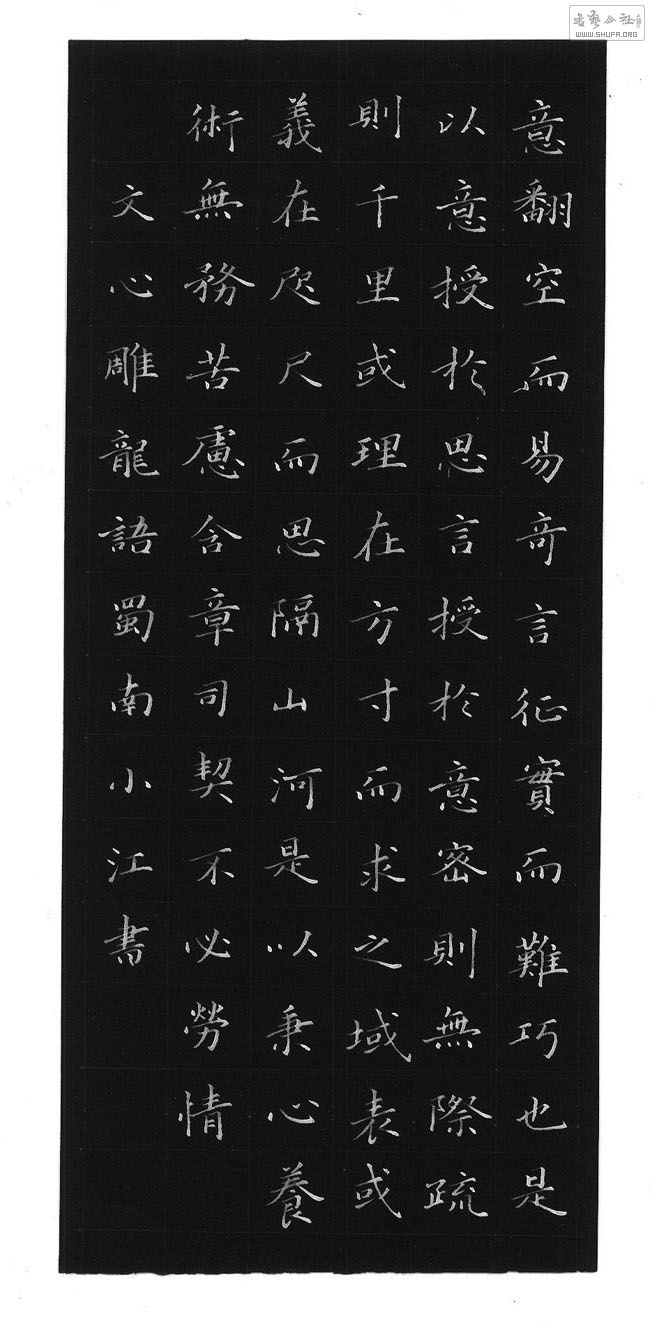 意翻空而易奇言征實而難巧也是
以意授於思言授於意密則無際疏
則千里或理在方寸而求之域表或
義在咫尺而思隔山河是以秉心養
術無務苦慮含章司契不必勞情
文心雕龍語蜀南小江書
书艺公社
WWW.SHUFA.ORG